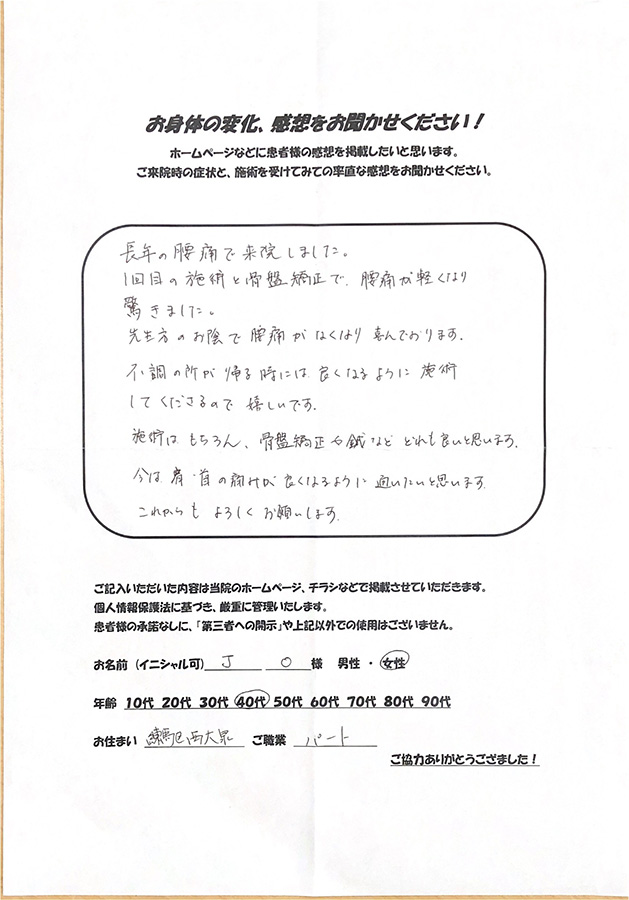 お身体の変化、感想をお聞かせください！
ホームページなどに患者様の感想を掲載したいと思います。
ご来院時の症状と、施術を受けてみての率直な感想をお聞かせください。
長年の腰痛で来院しました。
1回目の施術と骨盤矯正で、腰痛が軽くなり
驚きました。
先生方のお陰で腰痛がなくなり喜んでおります。
不調の所が帰る時には良くなるように施術
してくださるので嬉しいです。
施術はもちろん、骨盤矯正や鍼などどれも良いと思います。
今は肩・首の痛みが良くなるように通いたいと思います。
これからもよろしくお願いします。
ご記入いただいた内容は当院のホームページ、チラシなどで掲載させていただきます。
個人情報保護法に基づき、厳重に管理いたします。
患者様の承諾なしに、「第三者への開示」や上記以外での使用はございません。
お名前（イニシャル可） J O 様 男性 ・ 女性
年齢 10代 20代 30代 40代 50代 60代 70代 80代 90代
お住まい 練馬区西大泉 ご職業 パート
ご協力ありがとうござました！